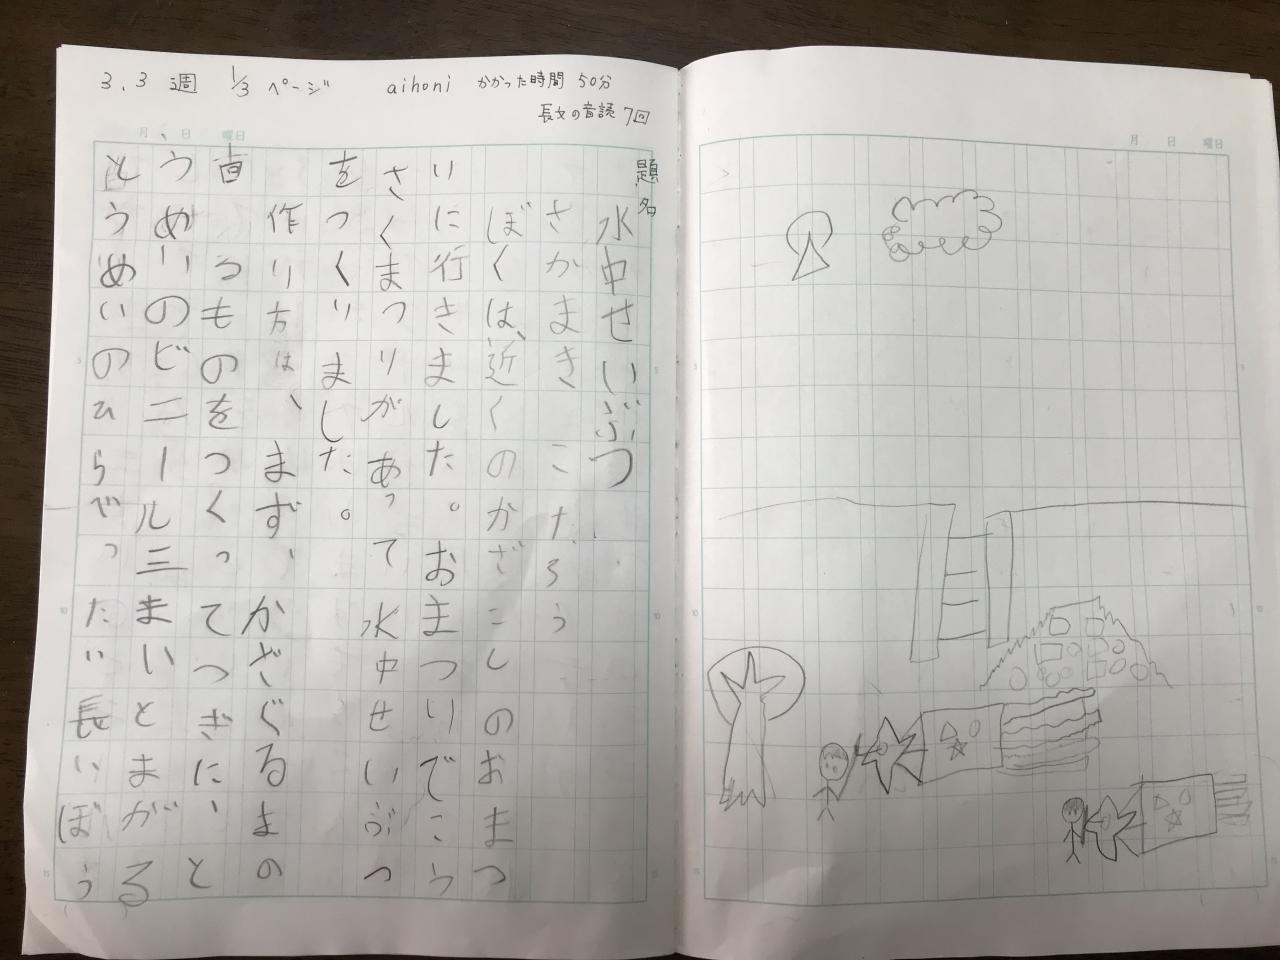 3.3週 1/3ページ aihoni かかった時間 50分
長文の音読 7回
月 日 曜日
月 日 曜日
題名
水中せいぶつ
さかまき こたろう
ぼくは、近くのかざこしのおまつ
りに行きました。おまつりでこう
さくまつりがあって水中せいぶつ
をつくりました。
作り方は、まず、かざぐるまの
つものをつくってつぎに、と
うめいのビニール三まいとまがる
とうめいのひらべったい長いぼう